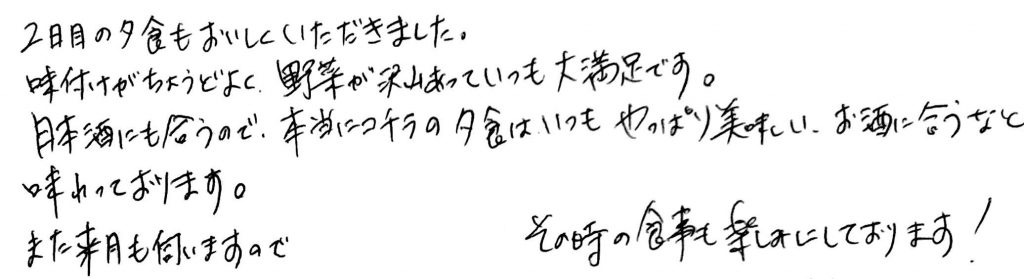 2日目の夕食もおいしくいただきました。
味付けがちょうどよく、野菜が沢山あっていつも大満足です。
日本酒にも合うので、本当にコチラの夕食は、いつもやっぱり美味しい、お酒に合うなと
味わっております。
また来月も伺いますので その時の食事も楽しみにしております!